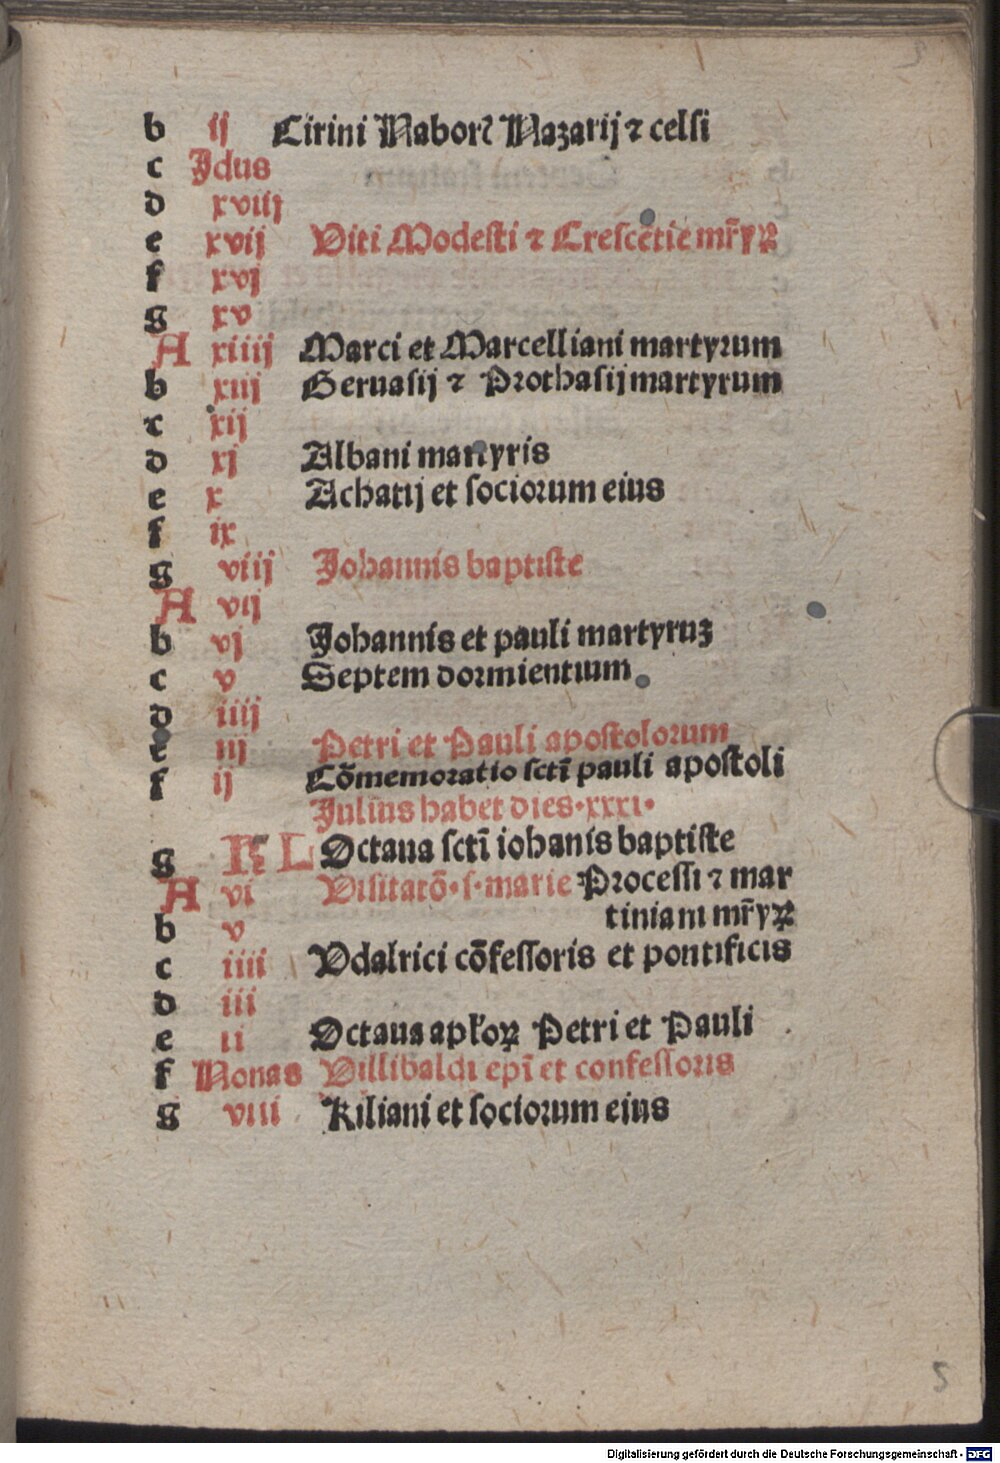 b ij Cirini Naborꝭ Nazarij ⁊ celsi
c Idus
d xviij
e xvij Viti Modesti ⁊ Crescētie mr̄yꝝ
f xvj
g xv
A xiiij Marci et Marcelliani martyrum
b xiij Geruasij ⁊ Prothasij martyrum
c xij
d xj Albani martyris
e x Achatij et sociorum eius
f ix
g viij Johannis baptiste
A vij
b vj Johannis et pauli martyruꝫ
c v Septem dormientium
d iiij
e iij Petri et Pauli apostolorum
f ij Cōmemoratio sctī pauli apostoli
Julius habet dies·xxxi·
g KL Octaua sctī iohanis baptiste
A vi Visitatō·s·marie Processi ⁊ mar
tiniani mr̄yꝝ
b v
c iiii Vdalrici cōfessoris et pontificis
d iii
e ii Octaua apłoꝝ Petri et Pauli
f Nonas Villibaldi epī et confessoris
g viii Kiliani et sociorum eius
5
Digitalisierung gefördert durch die Deutsche Forschungsgemeinschaft - DFG